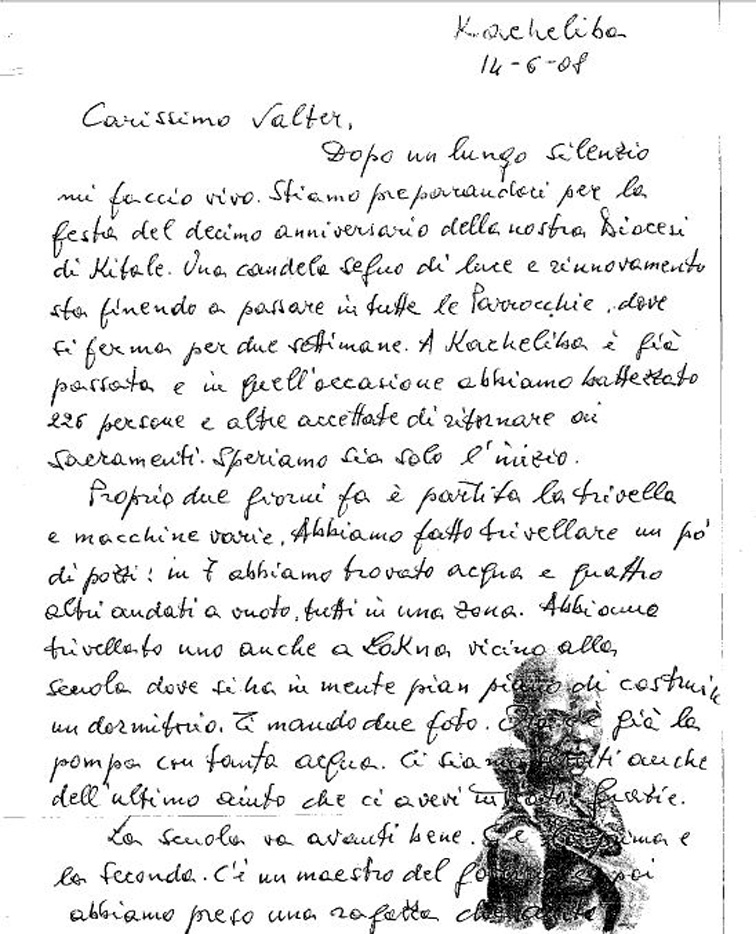 Kacheliba
14-6-08
Carissimo Valter,
Dopo un lungo silenzio
mi faccio vivo. Stiamo preparandoci per la
festa del decimo anniversario della nostra Diocesi
di Kitale. Una candela segno di luce e rinnovamento
sta finendo a passare in tutte le Parrocchie, dove
si ferma per due settimane. A Kacheliba è già
passata e in quell'occasione abbiamo battezzato
226 persone e altre accettate di ritornare ai
sacramenti. Speriamo sia solo l'inizio.
Proprio due giorni fa è partita la trivella
e macchine varie. Abbiamo fatto trivellare un pò
di pozzi: in 7 abbiamo trovato acqua e quattro
altri andati a vuoto, tutti in una zona. Abbiamo
trivellato uno anche a LoKna vicino alla
scuola dove si ha in mente pian piano di costruir
un dormitorio. Ti mando due foto. c'è già la
pompa con tanta acqua. Ci siamo anche
dell'ultimo aiuto che ci avevi Grazie.
La scuola va avanti bene. C'è la prima e
la seconda. C'è un maestro del poi
abbiamo preso una ragazza che